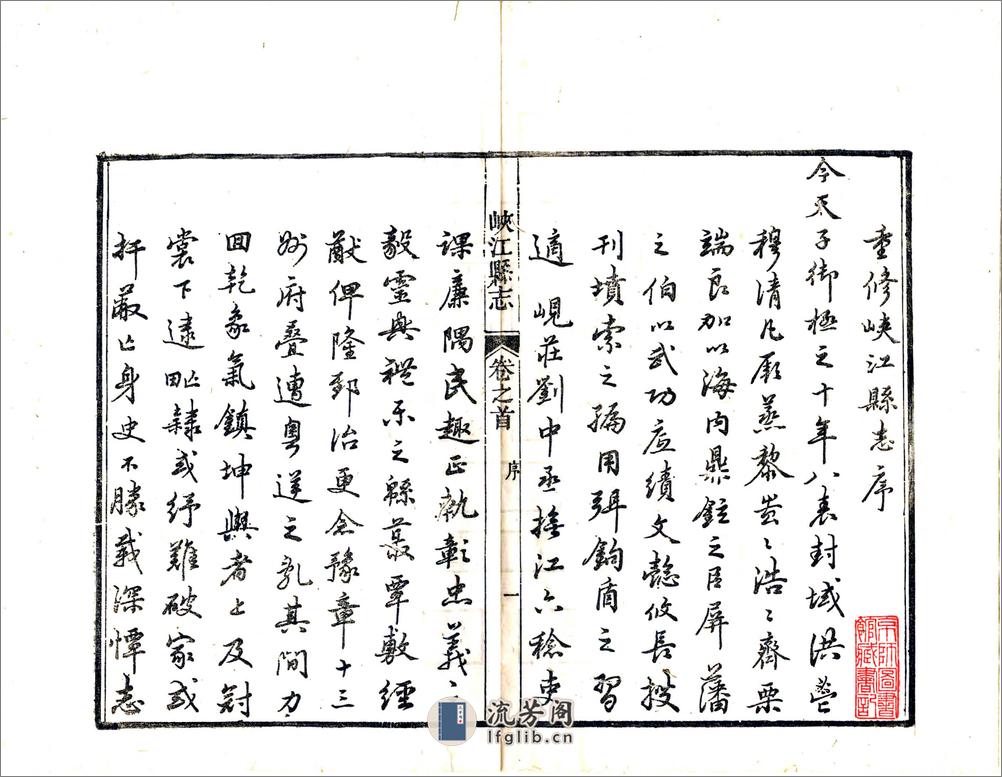 重修峽江縣志序
今天子御極之十年八表封域洪
穆清凡厥蒸黎蚩〻浩〻齊栗
端良加以海內鼎鉉之臣屏藩
之伯以武功底績文懿攸長披
刊墳索之編用弭鉤盾之習
適峴莊劉中丞撫江六稔吏
課廉隅民趣正執彰忠義之
峽江縣志
卷之首
序
一
毅靈興禮樂之緜蕞覃敷經
猷俾隆郅治更念豫章十三
州府疊遭粵逆之亂其間力
回乾象氣鎮坤輿者上及冠
裳下逮甿隸或紓難破家或
扞敵亡身史不勝載深憚志
京師圖書館藏書記
流芳阁
lfglib.cn